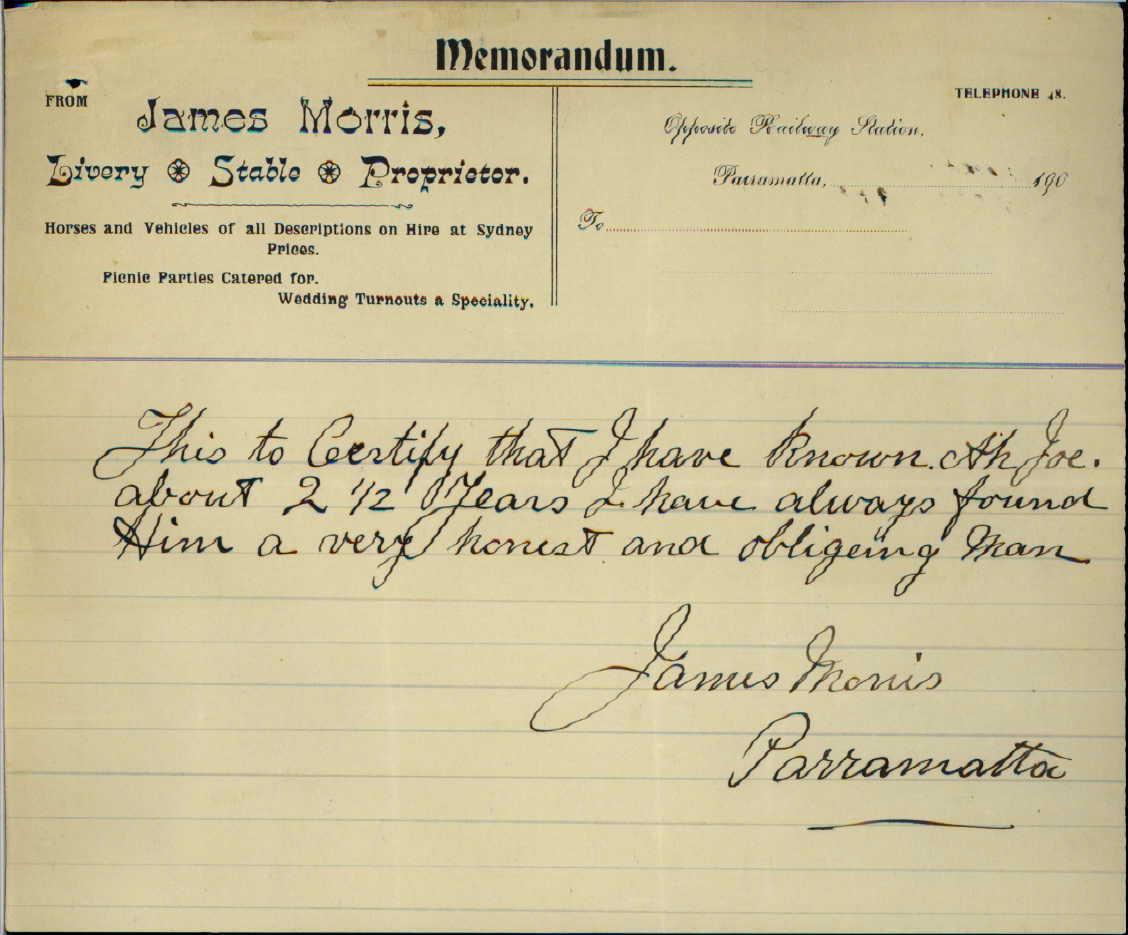 Memorandum.
FROM
James Morris,
Livery Stable Proprietor.
Horses and Vehicles of all Descriptions on Hire at Sydney
Prices.
Picnic Parties Catered for.
Wedding Turnouts a Speciality.
TELEPHONE 48.
Opposite Railway Station.
Parramatta, 190
To
This to Certify that I have known Ah Joe.
about 2 1/2 Years I have always found
Him a very honest and obligeing Man
James Morris
Parramatta